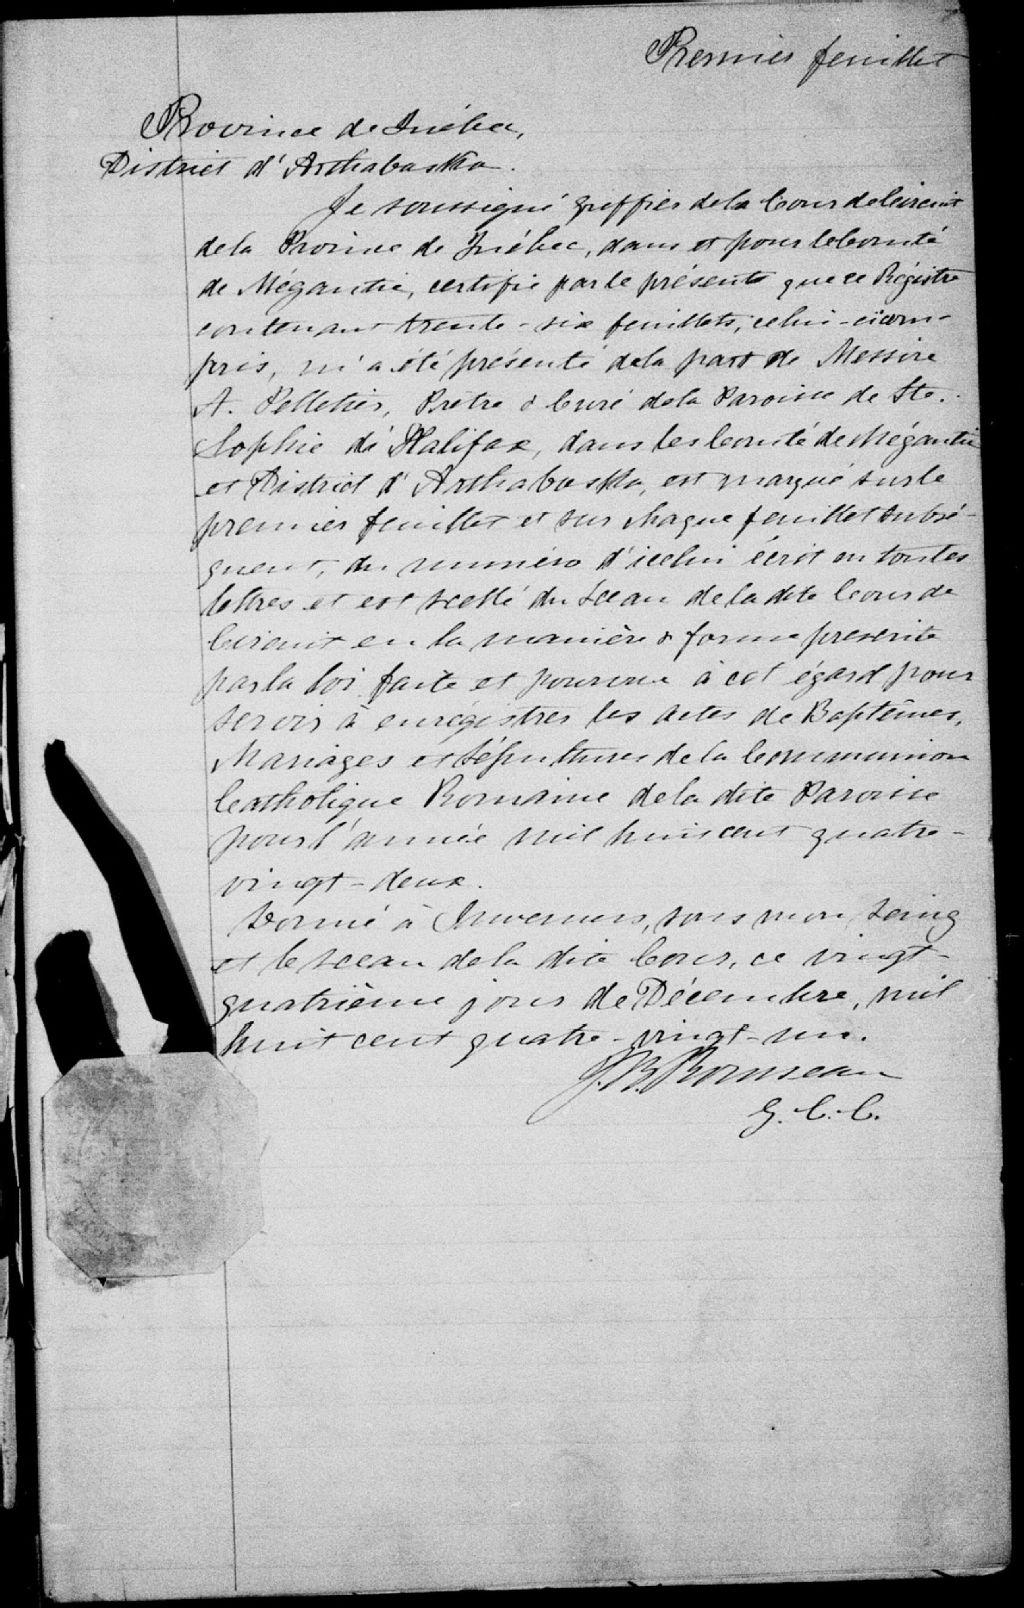 Premier feuillet
Province de Québec,
District d'Arthabaska.
Je soussigné greffier de la Cour de Circuit
de la Province de Québec, dans et pour le Comté
de Mégantic, certifie par le présente que ce Régistre
contenant trente-six feuillets, celui-ci com-
pris, m'a été présenté de la part de Messire
A. Pelletier, Prêtre & Curé de la Paroisse de Ste.
Sophie de Halifax, dans les Comté de Mégantic
et District d'Arthabaska, est marqué sur le
premier feuillet et sur chaque feuillet subsé-
quent, du numéro d'icelui écrit en toutes
lettres et est scellé du Sceau de la dite Cour de
Circuit en la manière & forme prescrite
par la loi faite et pourvue à cet égard pour
servir à enrégistrer les actes de Baptêmes,
Mariages et Sépultures de la Communion
Catholique Romaine de la dite Paroisse
pour l'année mil huit cent quatre-
vingt-deux.
Donné à Inverness, sous mon Seing
et le sceau de la dite Cour, ce vingt-
quatrième jour de Décembre, mil
huit cent quatre-vingt-un.
J. B. Rousseau
G. C. C.